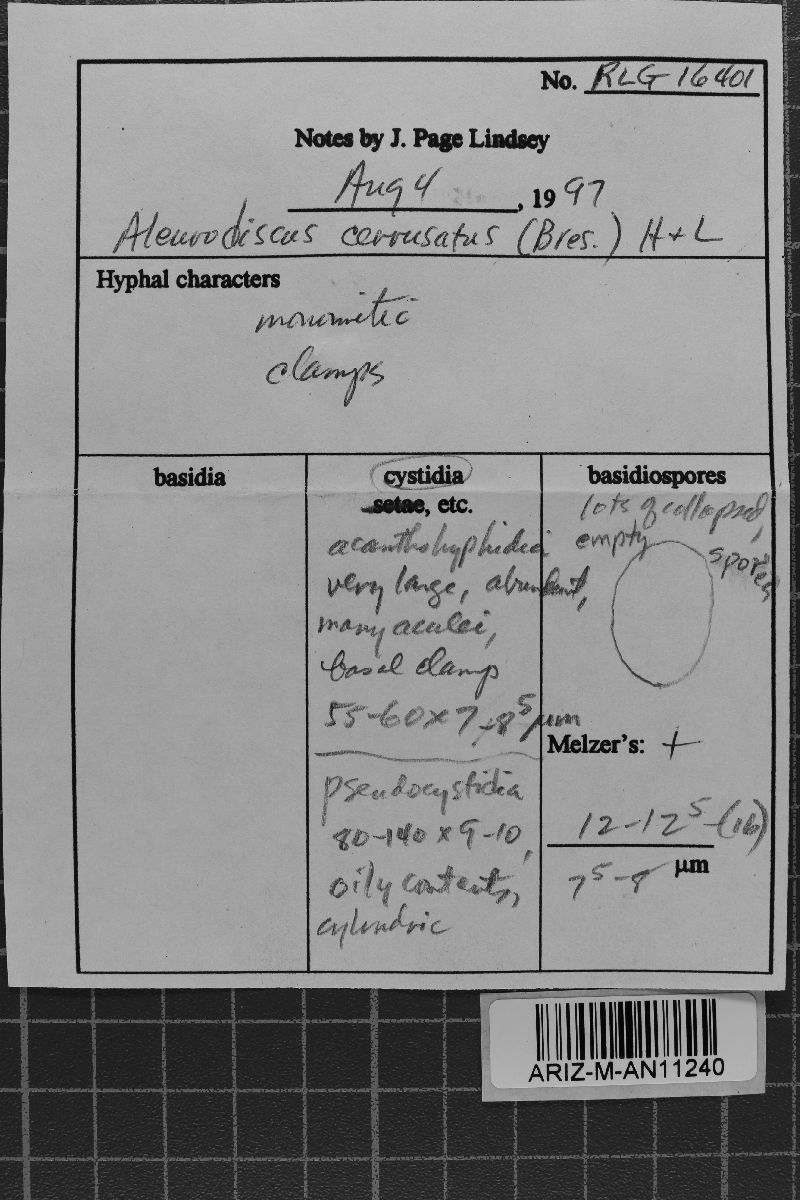 No. RLG 16401
Notes by J. Page Lindsey
Aug 4, 1997
Aleurodiscus cerrusatus (Bres.) H + L
Hyphal characters
monomitic
clamps
basidia
cystidia
setae, etc.
acanthohyphidia
very large, abundant,
many aculei,
basal clamp
55-60 x 7-8⁵ µm
pseudocystidia
80-140 x 9-10,
oily contents,
cylindric
basidiospores
lots of collapsed,
empty spores
Melzer's: +
12-12⁵-(16)
7⁵-8 µm
ARIZ-M-AN11240